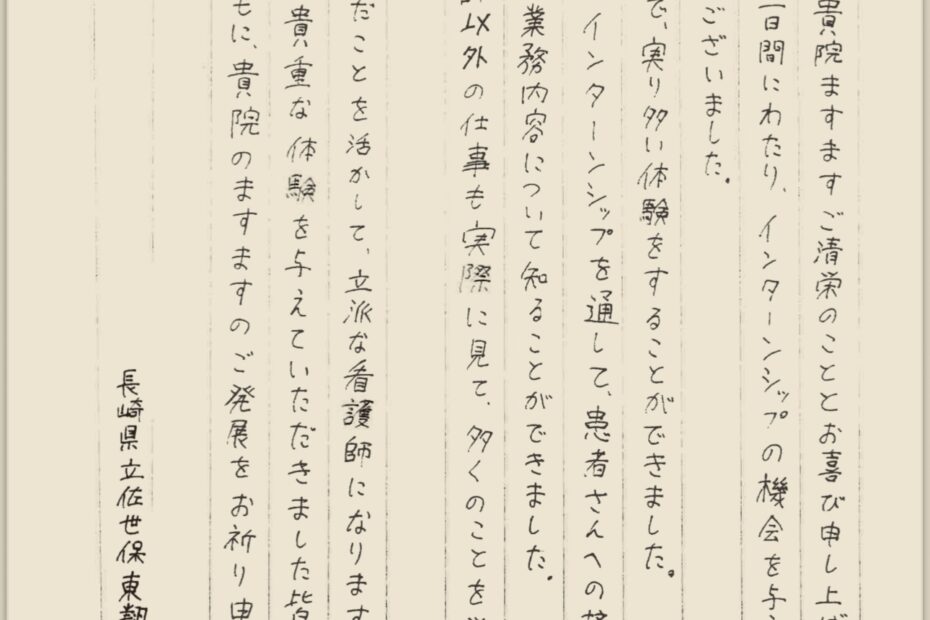 貴院ますますご清栄のこととお喜び申し上げ
日間にわたり、インターンシップの機会を与
ございました。
で、実り多い体験をすることができました。
インターンシップを通して、患者さんへの
業務内容について知ることができました。
以外の仕事も実際に見て、多くのことを
だことを活かして、立派な看護師になります
貴重な体験を与えていただきました皆
もに、貴院のますますのご発展をお祈り申
長崎県立佐世保東翔